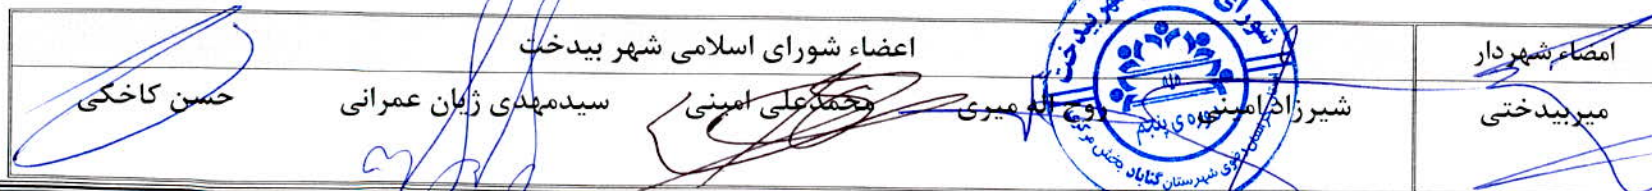 امضاء شهردار
اعضاء شورای اسلامی شهر بیدخت
میربیدختی
شیرزاد امینی
روح اله میری
محمدعلی امینی
سیدمهدی ژیان عمرانی
حسن کاخکی
شورای
شهر بیدخت
دوره ی پنجم
خراسان رضوی شهرستان گناباد بخش مرکزی